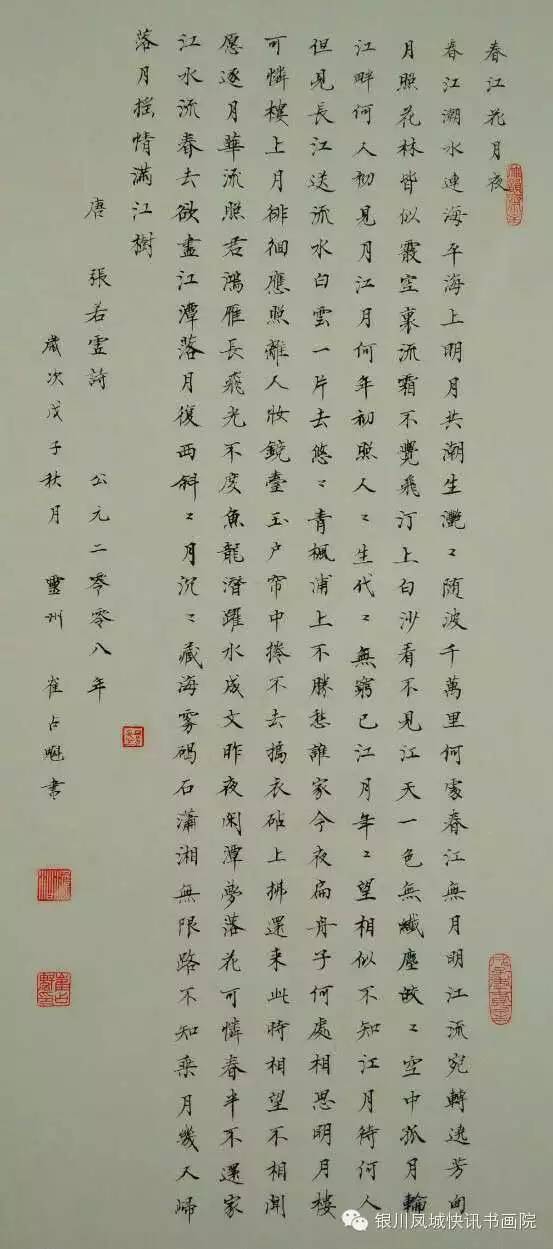 春江花月夜
春江潮水連海平海上明月共潮生灧〻随波千萬里何處春江無月明江流宛轉遶芳甸
月照花林皆似霰空裏流霜不覺飛汀上白沙看不見江天一色無纖塵皎〻空中孤月輪
江畔何人初見月江月何年初照人〻生代〻無窮已江月年〻望相似不知江月待何人
但見長江送流水白雲一片去悠〻青楓浦上不勝愁誰家今夜扁舟子何處相思明月樓
可憐樓上月徘徊應照離人妝鏡臺玉户帘中捲不去搗衣砧上拂還来此時相望不相聞
愿逐月華流照君鴻雁長飛光不度魚龍潛躍水成文昨夜闲潭夢落花可憐春半不還家
江水流春去欲盡江潭落月復西斜〻月沉〻藏海霧碣石瀟湘無限路不知乘月幾人歸
落月摇情滿江樹
唐 張若虚詩 公元二零零八年
歲次戊子秋月 靈州 崔占魁書
银川凤城快讯书画院